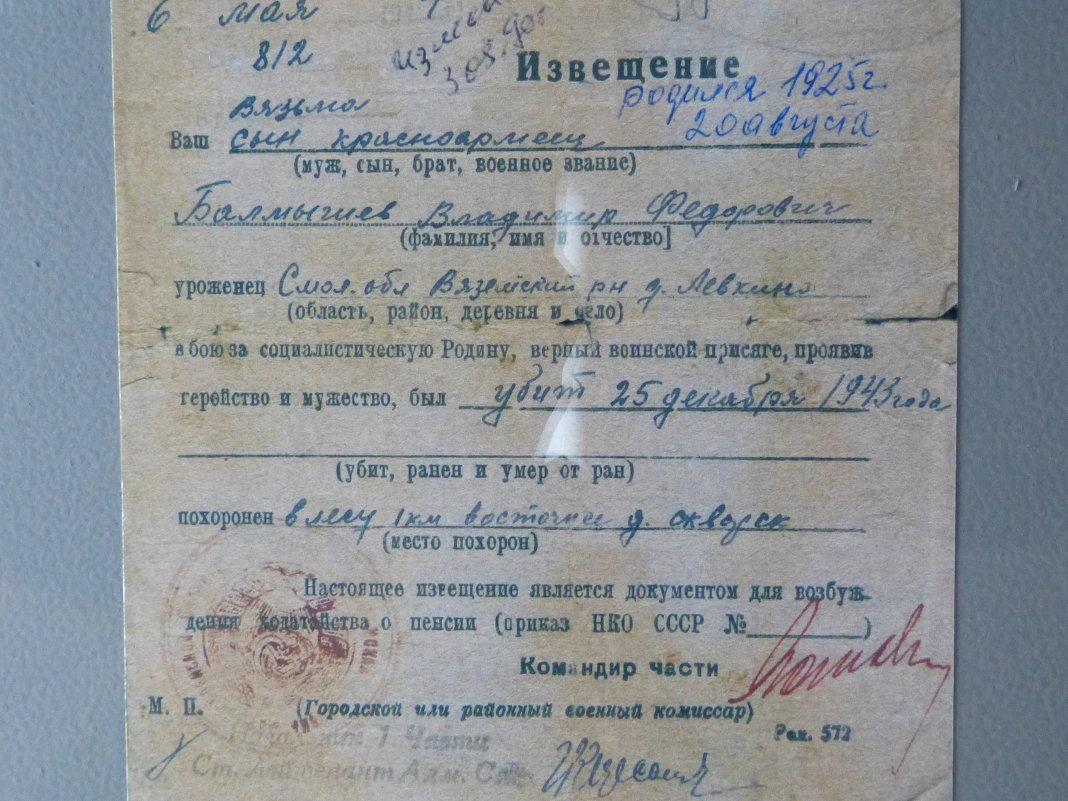 6 мая
812
Извещение
родился 1925г.
20 августа
Вязьма
Ваш сын красноармеец
(муж, сын, брат, военное звание)
Балмычев Владимир Федорович
(фамилия, имя и отчество]
уроженец Смол. обл Вяземский рн д. Левкино
(область, район, деревня и село)
в бою за социалистическую Родину, верный воинской присяге, проявив
геройство и мужество, был убит 25 декабря 1943 года
(убит, ранен и умер от ран)
похоронен в лесу 1 км восточнее д. скварск
(место похорон)
Настоящее извещение является документом для возбуж-
дения ходатайства о пенсии (приказ НКО СССР №)
Командир части
М. П. (Городской или районный военный комиссар)
Рек. 572
1 Части
Ст. Лейтенант Адм. Сл.